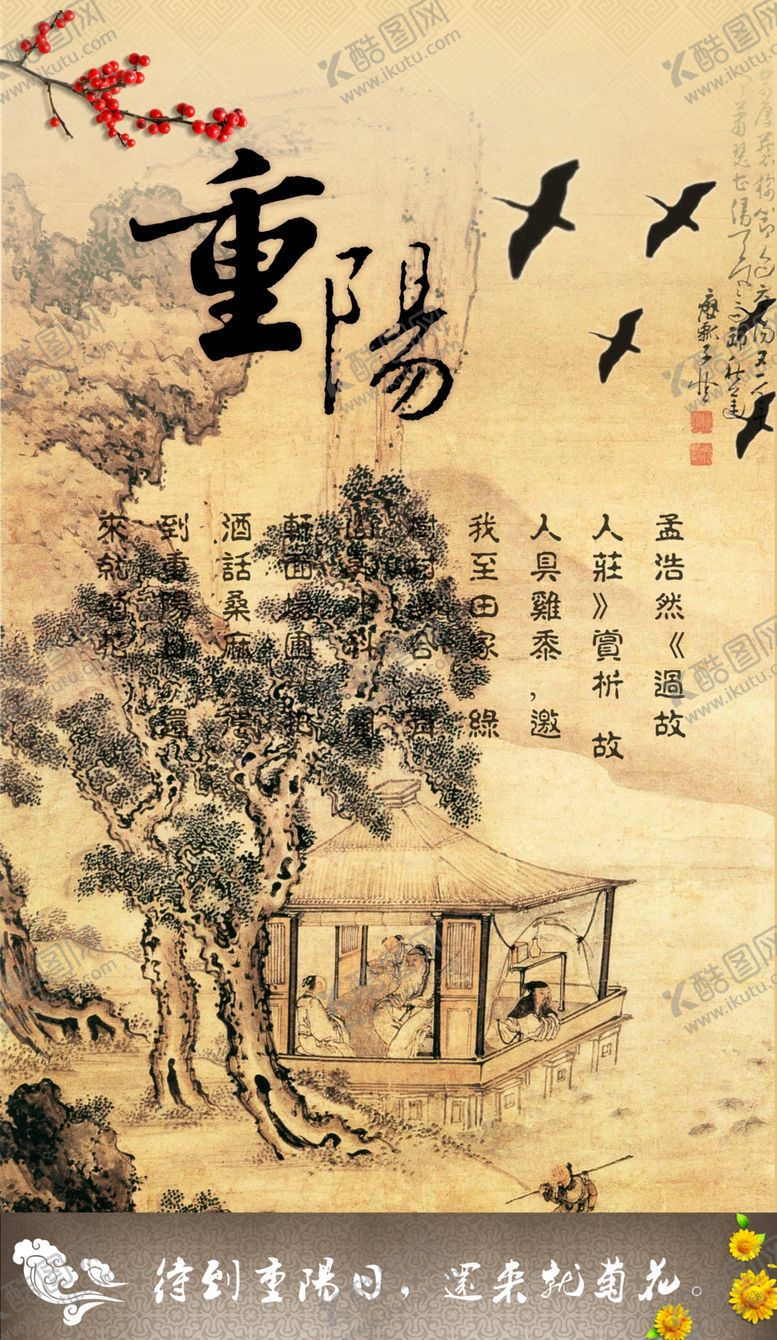 重陽
孟浩然《過故
人莊》賞析 故
人具雞黍,邀
我至田家 綠
樹村邊合 青
山郭外斜 開
軒面場圃 把
酒話桑麻 待
到重陽日 還
來就菊花
待到重陽日，還来就菊花。
酷图网
www.ikutu.com